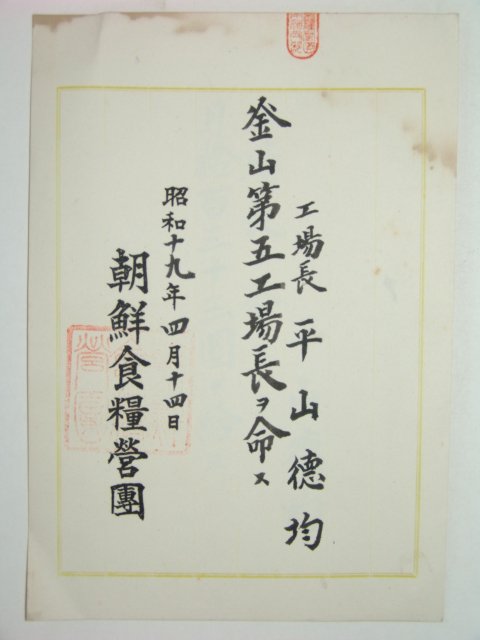 工場長 平山德均
釜山第五工場長ヲ命ス
昭和十九年四月十四日
朝鮮食糧營團